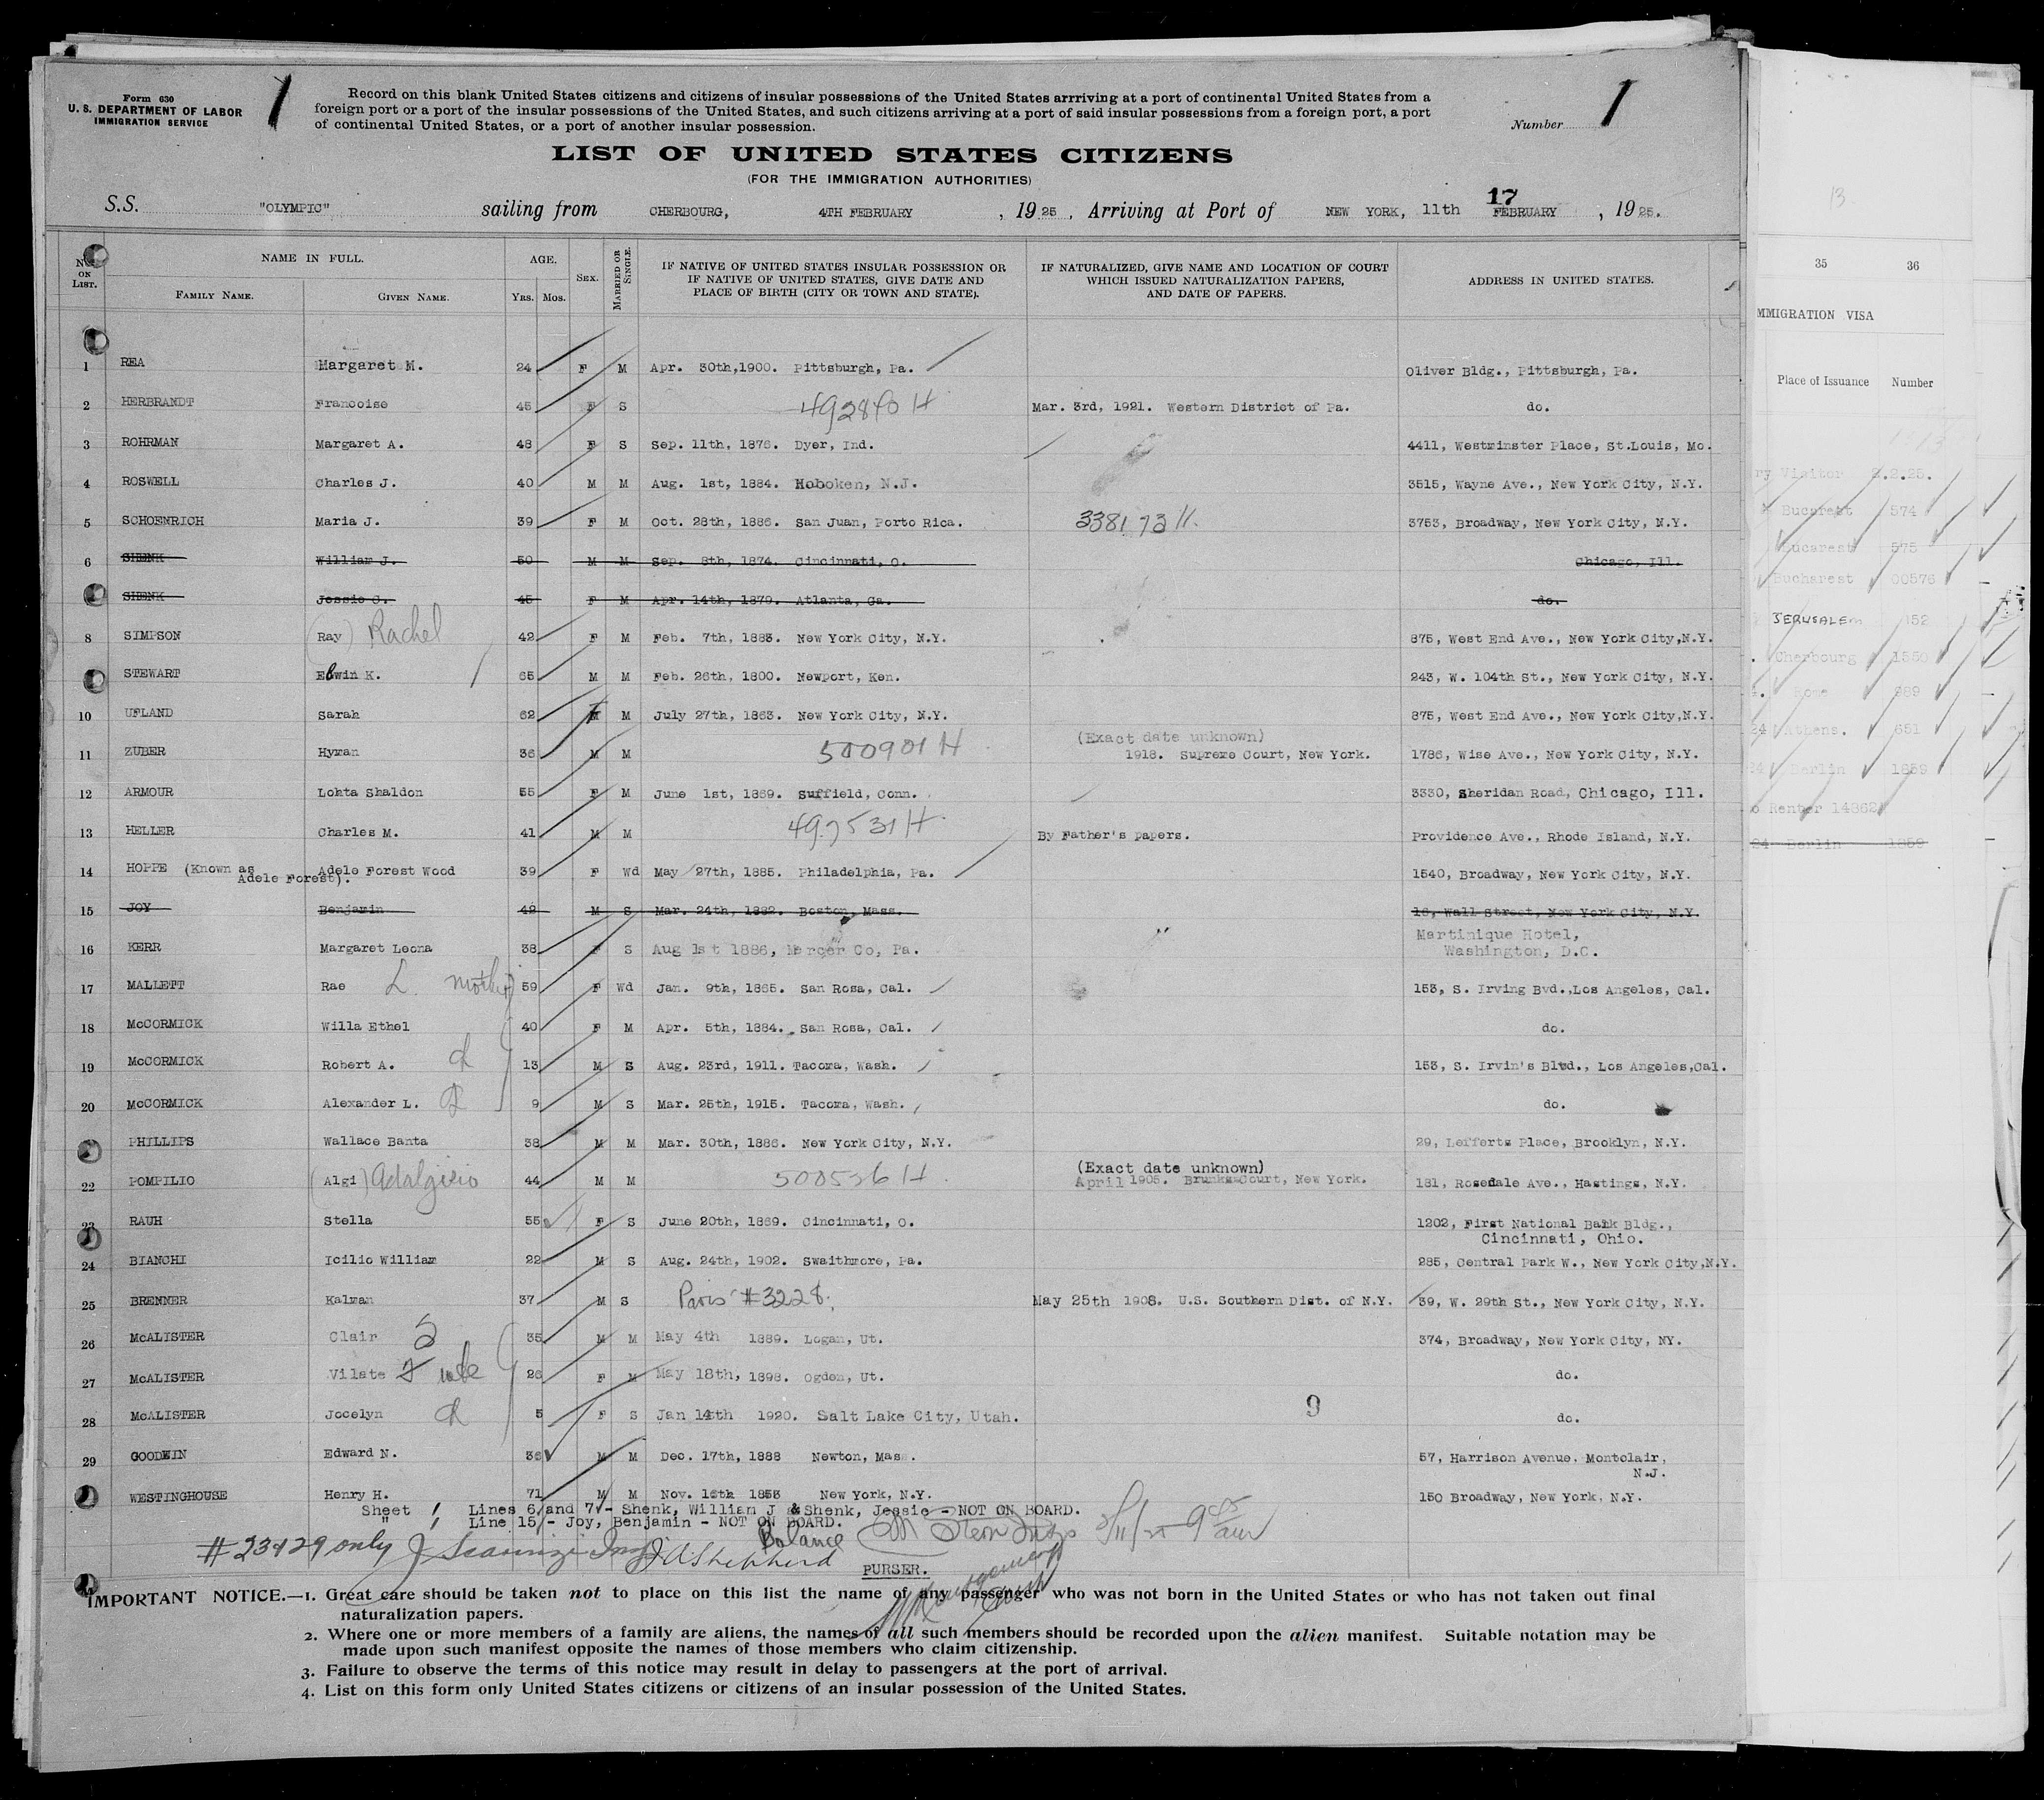 Form 630
U. S. DEPARTMENT OF LABOR
IMMIGRATION SERVICE
1
Record on this blank United States citizens and citizens of insular possessions of the United States arrriving at a port of continental United States from a
foreign port or a port of the insular possessions of the United States, and such citizens arriving at a port of said insular possessions from a foreign port, a port
of continental United States, or a port of another insular possession.
Number 1
LIST OF UNITED STATES CITIZENS
(FOR THE IMMIGRATION AUTHORITIES)
S.S. "OLYMPIC" sailing from CHERBOURG, 4TH FEBRUARY , 19 25 , Arriving at Port of NEW YORK, 11th 17 FEBRUARY , 19 25.
No. ON LIST. NAME IN FULL. FAMILY NAME. GIVEN NAME. AGE. YRS. MOS. SEX. MARRIED OR SINGLE. IF NATIVE OF UNITED STATES INSULAR POSSESSION OR IF NATIVE OF UNITED STATES, GIVE DATE AND PLACE OF BIRTH (CITY OR TOWN AND STATE). IF NATURALIZED, GIVE NAME AND LOCATION OF COURT WHICH ISSUED NATURALIZATION PAPERS, AND DATE OF PAPERS. ADDRESS IN UNITED STATES.
1 REA Margaret M. 24 F M Apr. 30th,1900. Pittsburgh, Pa. Oliver Bldg., Pittsburgh, Pa.
2 HERBRANDT Francoise 45 F S 492840 H Mar. 3rd, 1921. Western District of Pa. do.
3 ROHRMAN Margaret A. 48 F S Sep. 11th, 1876. Dyer, Ind. 4411, Westminster Place, St.Louis, Mo.
4 ROSWELL Charles J. 40 M M Aug. 1st, 1884. Hoboken, N.J. 3515, Wayne Ave., New York City, N.Y.
5 SCHOENRICH Maria J. 39 F M Oct. 28th, 1886. San Juan, Porto Rica. 338173 H. 3753, Broadway, New York City, N.Y.
6 SHENK William J. 50 M M Sep. 8th, 1874. Cincinnati, O. Chicago, Ill.
SHENK Jessie C. 45 F M Apr. 14th, 1879. Atlanta, Ga. do.
8 SIMPSON (Ray) Rachel 42 F M Feb. 7th, 1883. New York City, N.Y. 875, West End Ave., New York City,N.Y.
STEWART Edwin K. 65 M M Feb. 26th, 1800. Newport, Ken. 243, W. 104th St., New York City, N.Y.
10 UFLAND Sarah 62 M July 27th, 1863. New York City, N.Y. 875, West End Ave., New York City,N.Y.
11 ZUBER Hyman 36 M M 500901 H (Exact date unknown) 1918. Supreme Court, New York. 1786, Wise Ave., New York City, N.Y.
12 ARMOUR Lohta Shaldon 55 F M June 1st, 1869. Suffield, Conn. 3330, Sheridan Road, Chicago, Ill.
13 HELLER Charles M. 41 M M 497531 H By Father's papers. Providence Ave., Rhode Island, N.Y.
14 HOPPE (Known as Adele Forest). Adele Forest Wood 39 F Wd May 27th, 1885. Philadelphia, Pa. 1540, Broadway, New York City, N.Y.
15 JOY Benjamin 42 M S Mar. 24th, 1882. Boston, Mass. 16, Wall Street, New York City, N.Y.
16 KERR Margaret Leona 38 F S Aug 1st 1886, Mercer Co, Pa. Martinique Hotel, Washington, D.C.
17 MALLETT Rae L mother 59 F Wd Jan. 9th, 1865. San Rosa, Cal. 153, S. Irving Bvd.,Los Angeles, Cal.
18 McCORMICK Willa Ethel 40 F M Apr. 5th, 1884. San Rosa, Cal. do.
19 McCORMICK Robert A. 13 M S Aug. 23rd, 1911. Tacoma, Wash. 153, S. Irvin's Blvd., Los Angeles,Cal.
20 McCORMICK Alexander L. 9 M S Mar. 25th, 1915. Tacoma, Wash. do.
PHILLIPS Wallace Banta 38 M M Mar. 30th, 1886. New York City, N.Y. 29, Lefferts Place, Brooklyn, N.Y.
22 POMPILIO (Algi) Adalgisio 44 M M 500536 H (Exact date unknown) April 1905. Court, New York. 181, Rosedale Ave., Hastings, N.Y.
23 RAUH Stella 55 F S June 20th, 1869. Cincinnati, O. 1202, First National Bank Bldg., Cincinnati, Ohio.
24 BIANCHI Icilio William 22 M S Aug. 24th, 1902. Swaithmore, Pa. 285, Central Park W., New York City,N.Y.
25 BRENNER Kalman 37 M S Paris #3228. May 25th 1908. U.S. Southern Dist. of N.Y. 39, W. 29th St., New York City, N.Y.
26 McALISTER Clair 35 M M May 4th 1889. Logan, Ut. 374, Broadway, New York City, NY.
27 McALISTER Vilate wife 26 F M May 18th, 1898. Ogden, Ut. do.
28 McALISTER Jocelyn 5 F S Jan 14th 1920. Salt Lake City, Utah. 9 do.
29 GOODWIN Edward N. 36 M M Dec. 17th, 1888 Newton, Mass. 57, Harrison Avenue. Montclair, N.J.
WESTINGHOUSE Henry H. 71 M M Nov. 16th 1853 New York, N.Y. 150 Broadway, New York, N.Y.
Sheet 1 Lines 6 and 7 - Shenk, William J & Shenk, Jessie - NOT ON BOARD.
" 1 Line 15 - Joy, Benjamin - NOT ON BOARD.
#23 & 29 only Balance 2/11/25
J A Shepherd
PURSER.
IMPORTANT NOTICE.—1. Great care should be taken not to place on this list the name of any passenger who was not born in the United States or who has not taken out final
naturalization papers.
2. Where one or more members of a family are aliens, the names of all such members should be recorded upon the alien manifest. Suitable notation may be
made upon such manifest opposite the names of those members who claim citizenship.
3. Failure to observe the terms of this notice may result in delay to passengers at the port of arrival.
4. List on this form only United States citizens or citizens of an insular possession of the United States.
13
35 36
MMIGRATION VISA
Place of Issuance Number
ry Visitor 2.2.25.
Bucarest 574
Bucarest 575
Bucharest 00576
JERUSALEM 152
Cherbourg 1550
Rome 989
24 Athens. 651
24 Berlin 1859
o Renter 14862
24 Berlin 1859